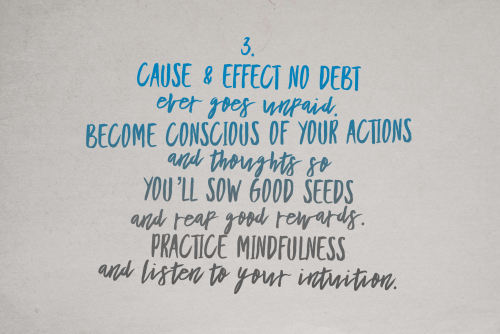 3.
CAUSE & EFFECT NO DEBT
ever goes unpaid.
BECOME CONSCIOUS OF YOUR ACTIONS
and thoughts so
YOU'LL SOW GOOD SEEDS
and reap good rewards.
PRACTICE MINDFULNESS
and listen to your intuition.